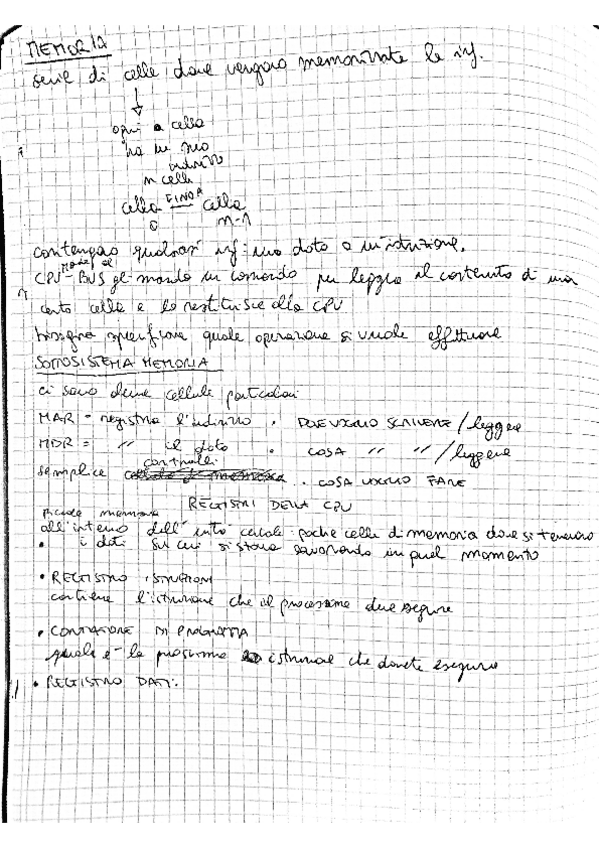 MEMORIA
serie di celle dove vengono memorizzate le inf.
ogni cella
ha un suo
indirizzo
n celle
cella FINO A cella
0 n-1
contengono qualsiasi inf: uno dato o un'istruzione.
CPU - BUS gli manda un comando per leggere il contenuto di una
certa cella e lo restituisce alla CPU
bisogna specificare quale operazione si vuole effettuare
SOTTOSISTEMA MEMORIA
ci sono alcune cellule particolari
MAR - registra l'indirizzo . DOVE VOGLIO SCRIVERE / leggere
MDR = " il dato . COSA " " / leggere
semplice controlli . . COSA VOGLIO FARE
REGISTRI DELLA CPU
piccola memoria
all'interno dell'unità centrale: poche celle di memoria dove si tenevano
• i dati su cui si stava lavorando in quel momento
• REGISTRO ISTRUZIONI
contiene l'istruzione che il processore deve eseguire
• CONTATORE DI PROGRAMMA
quale è la prossima istruzione che dovete eseguire
• REGISTRO DATI: